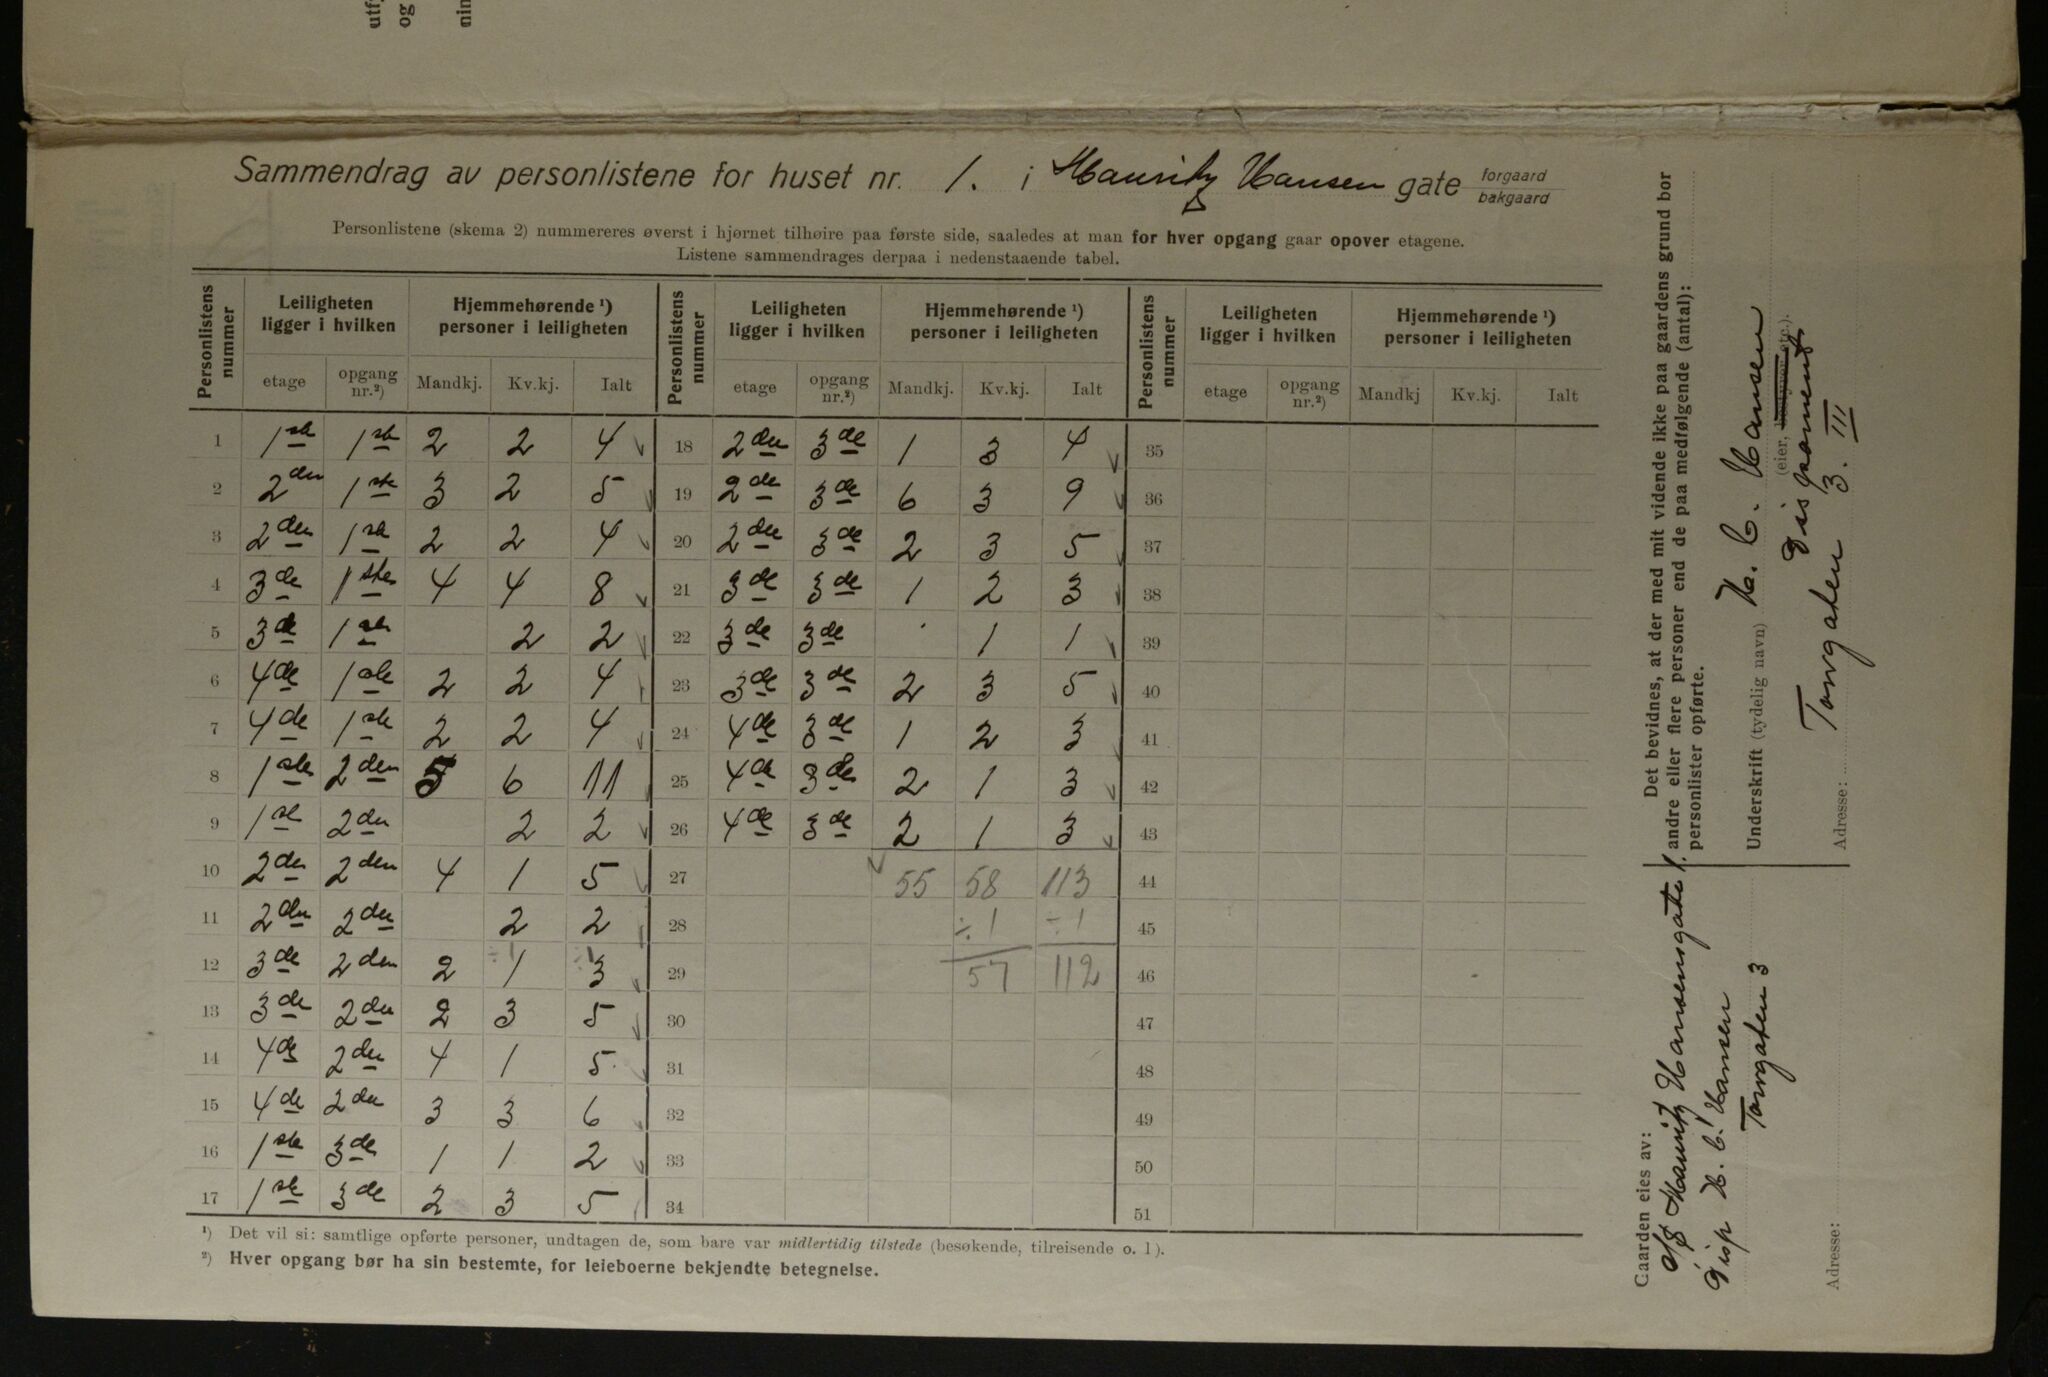 Sammendrag av personlistene for huset nr. 1. i Mauritz Hansen gate forgaard bakgaard
Personlistene (skema 2) nummereres øverst i hjørnet tilhøire paa første side, saaledes at man for hver opgang gaar opover etagene.
Listene sammendrages derpaa i nedenstaaende tabel.
Personlistens nummer | Leiligheten ligger i hvilken | Hjemmehørende ¹) personer i leiligheten | Personlistens nummer | Leiligheten ligger i hvilken | Hjemmehørende ¹) personer i leiligheten | Personlistens nummer | Leiligheten ligger i hvilken | Hjemmehørende ¹) personer i leiligheten
etage | opgang nr.²) | Mandkj. | Kv.kj. | Ialt | etage | opgang nr.²) | Mandkj. | Kv.kj. | Ialt | etage | opgang nr.²) | Mandkj | Kv.kj. | Ialt
1 1ste 1ste 2 2 4 18 2den 3de 1 3 4 35
2 2den 1ste 3 2 5 19 2de 3de 6 3 9 36
3 2den 1ste 2 2 4 20 2den 3de 2 3 5 37
4 3de 1ste 4 4 8 21 3de 3de 1 2 3 38
5 3de 1ste 2 2 22 3de 3de 1 1 39
6 4de 1ste 2 2 4 23 3de 3de 2 3 5 40
7 4de 1ste 2 2 4 24 4de 3de 1 2 3 41
8 1ste 2den 5 6 11 25 4de 3de 2 1 3 42
9 1ste 2den 2 2 26 4de 3de 2 1 3 43
10 2den 2den 4 1 5 27 55 58 113 44
11 2den 2den 2 2 28 ÷ 1 ÷ 1 45
12 3de 2den 2 ÷1 1 ÷1 3 29 57 112 46
13 3de 2den 2 3 5 30 47
14 4de 2den 4 1 5 31 48
15 4de 2den 3 3 6 32 49
16 1ste 3de 1 1 2 33 50
17 1ste 3de 2 3 5 34 51
¹) Det vil si: samtlige opførte personer, undtagen de, som bare var midlertidig tilstede (besøkende, tilreisende o. l).
²) Hver opgang bør ha sin bestemte, for leieboerne bekjendte betegnelse.
Det bevidnes, at der med mit vidende ikke paa gaardens grund bor
andre eller flere personer end de paa medfølgende (antal):
personlister opførte.
Underskrift (tydelig navn) H. C. Hansen
(eier, bestyrer etc.).
Disponent
Adresse: Torvgaten 3. III
Gaarden eies av:
a/s Mauritz Hansensgate 1.
Disp H. C. Hansen
Torvgaten 3
Adresse:
utf
og
nin